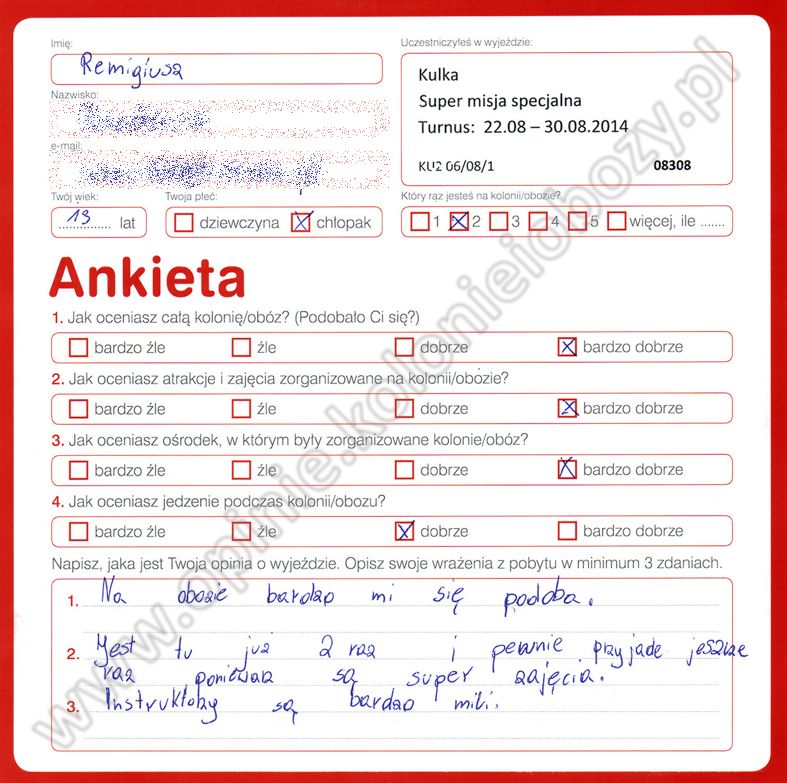 Imię:
Remigiusz
Uczestniczyłeś w wyjeździe:
Kulka
Super misja specjalna
Turnus: 22.08 – 30.08.2014
KU2 06/08/1 08308
Nazwisko:
e-mail:
Twój wiek:
13 lat
Twoja płeć:
dziewczyna chłopak
Który raz jesteś na kolonii/obozie?
1 2 3 4 5 więcej, ile .......
Ankieta
1. Jak oceniasz całą kolonię/obóz? (Podobało Ci się?)
bardzo źle źle dobrze bardzo dobrze
2. Jak oceniasz atrakcje i zajęcia zorganizowane na kolonii/obozie?
bardzo źle źle dobrze bardzo dobrze
3. Jak oceniasz ośrodek, w którym były zorganizowane kolonie/obóz?
bardzo źle źle dobrze bardzo dobrze
4. Jak oceniasz jedzenie podczas kolonii/obozu?
bardzo źle źle dobrze bardzo dobrze
Napisz, jaka jest Twoja opinia o wyjeździe. Opisz swoje wrażenia z pobytu w minimum 3 zdaniach.
1. Na obozie bardzo mi się podoba.
2. Jest tu już 2 raz i pewnie przyjade jeszcze
raz poniéważ są super zajęcia.
3. Instruktoby są bardzo mili.
www.opinie.kolonieiobozy.pl